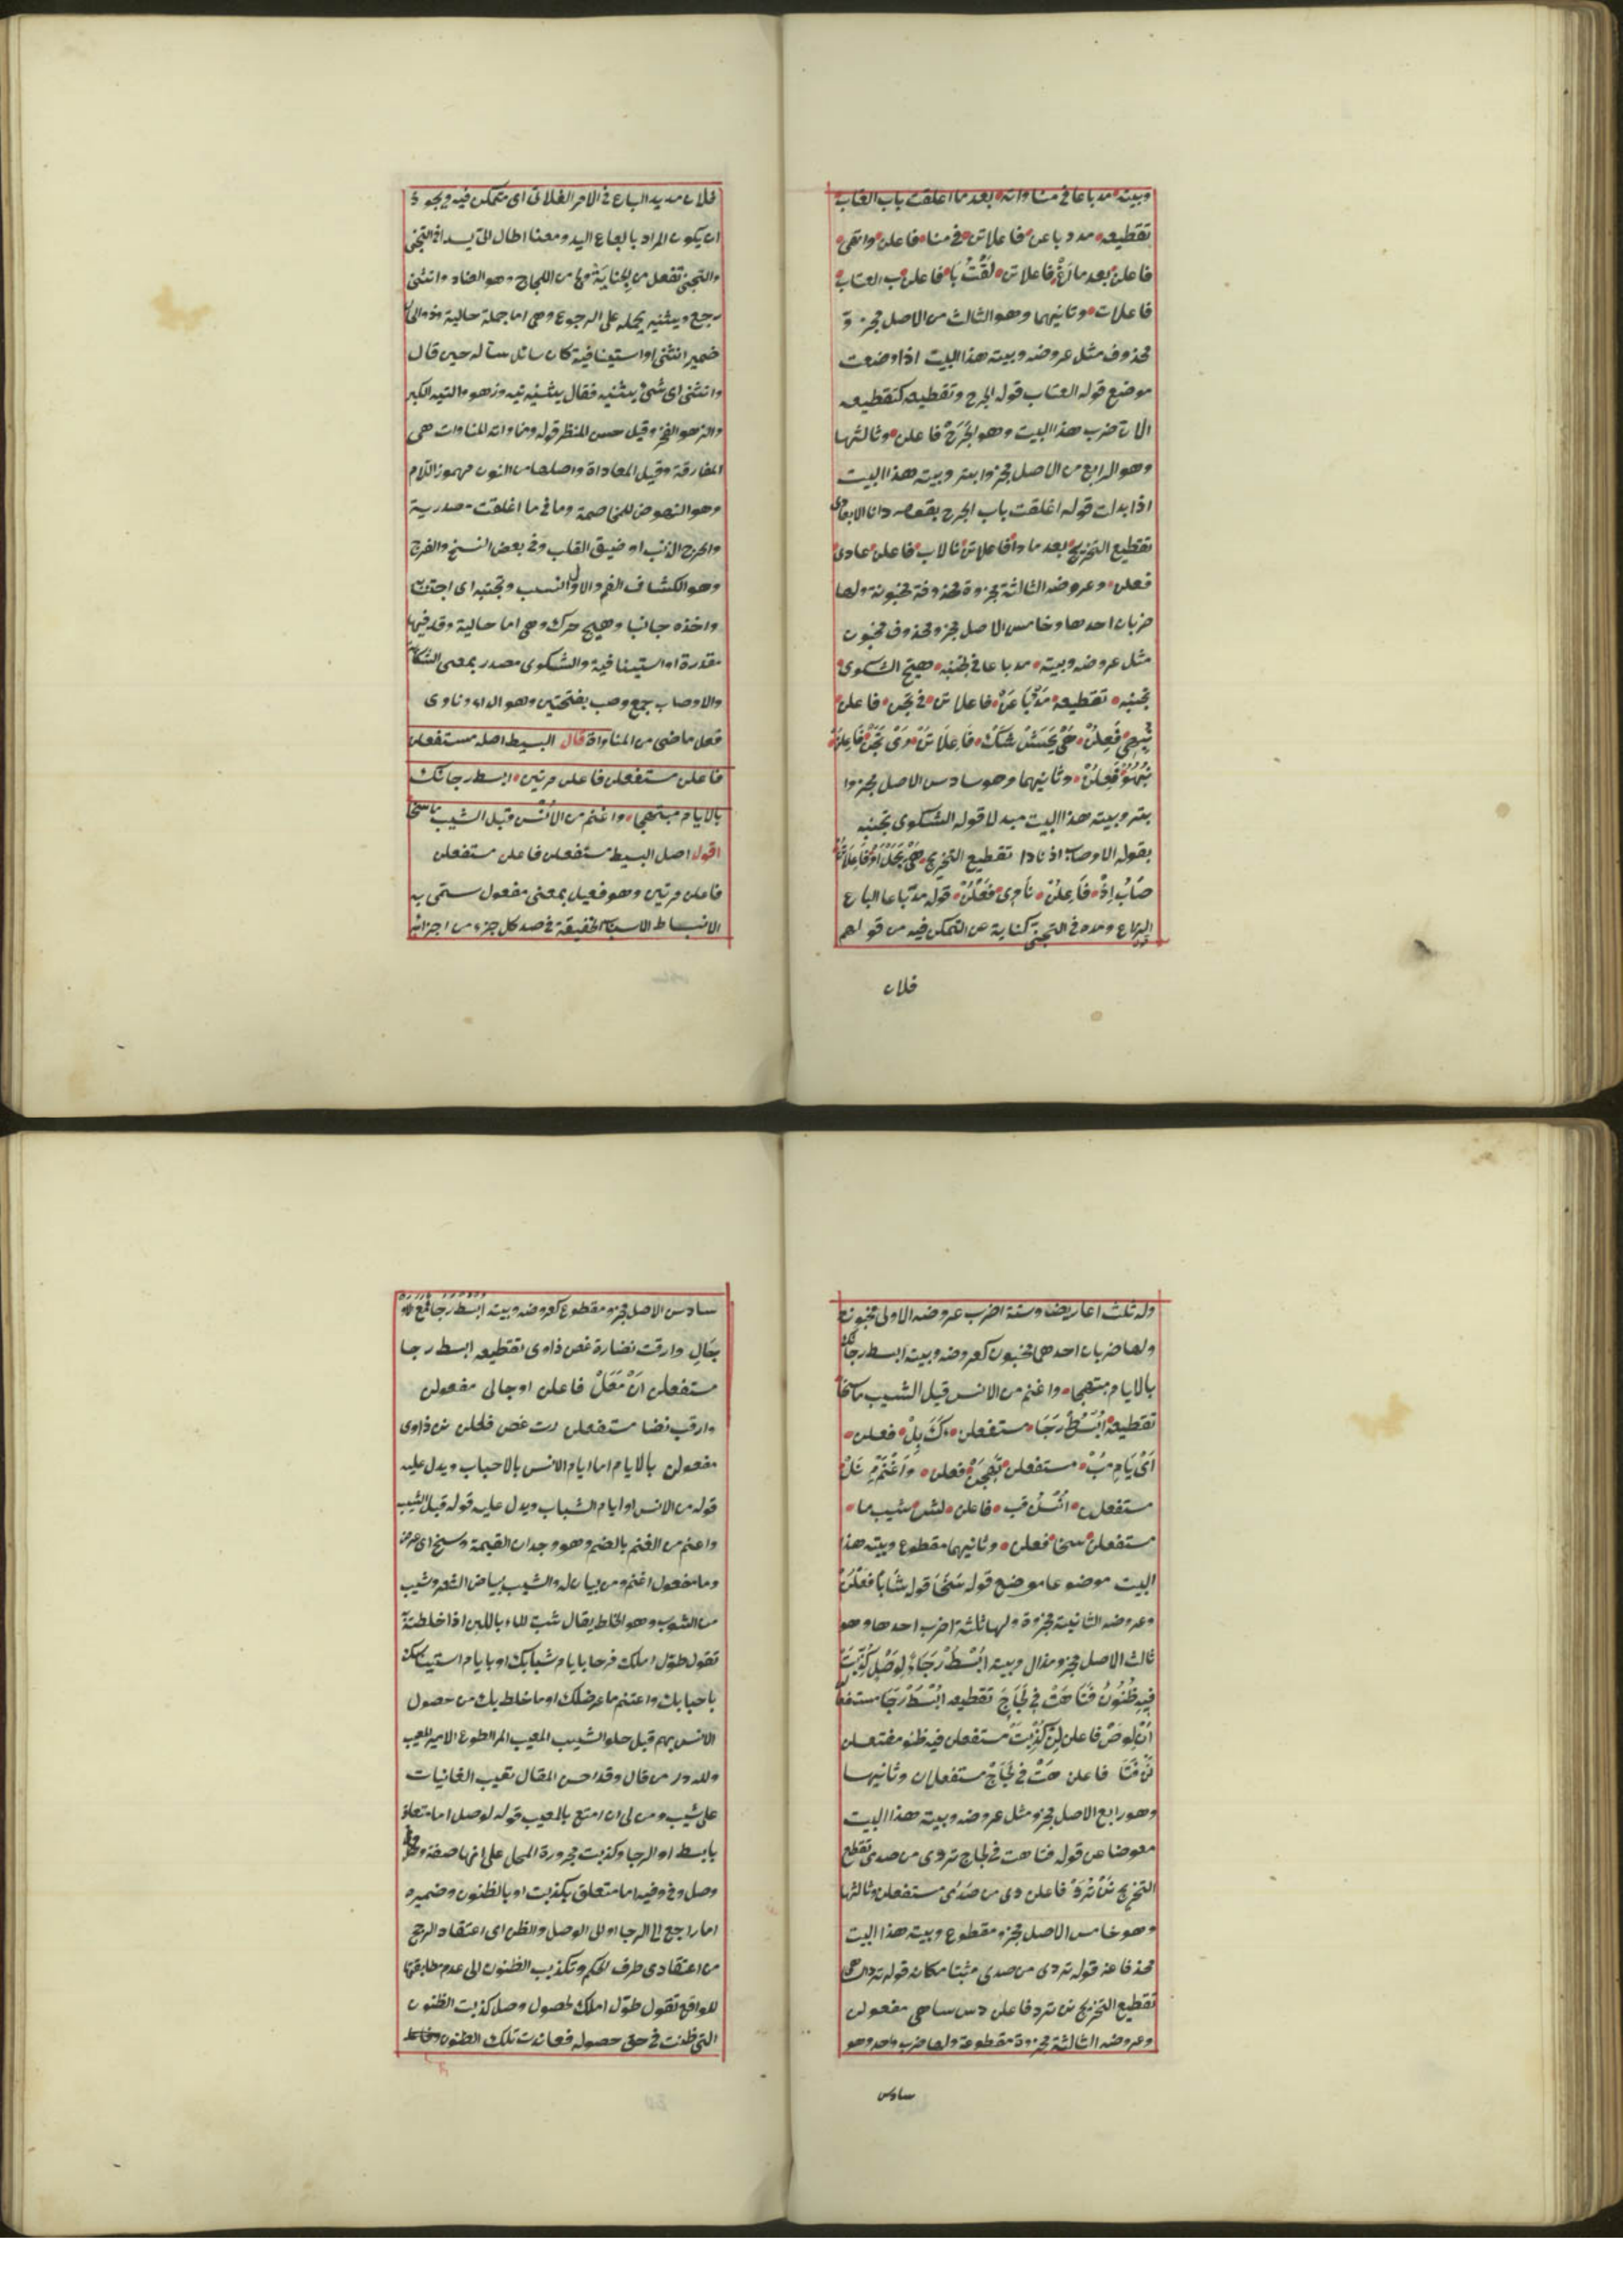 وبيته مد باعا في مناواته بعد ما اغلقت باب العتاب
تقطيعه مدد باعن فاعلاتن في منا فاعلن واتهى
فاعلن بعد ما اغ فاعلاتن لقت با فاعلن ب العتاب
فاعلات وثانيهما وهو الثالث من الاصل مجزوّ
محذوف مثل عروضه وبيته هذا البيت اذا وضعت
موضع قوله العتاب قوله الحرج وتقطيعه كتقطيعه
الا ان ضرب هذا البيت وهو لحرج فاعلن وثالثها
وهو الرابع من الاصل مجزو ابتر وبيته هذا البيت
اذا بدلت قوله اغلقت باب الحرج بقوله دانا الابعادى
تقطيع التخريج بعد ما دا فاعلاتن نالاب فاعلن عادى
فعلن وعروضه الثالثة مجزوة محذوفة مخبونة ولها
ضربان احدها وخامس الاصل مجزو محذوف مخبون
مثل عروضه وبيته مد باعا في تجنبه هيج الشكوى
تجنبه تقطيعه مدد باعن فاعلاتن في تجن فاعلن
فعلن فاعلاتن فاعلن
فعلن وثانيهما وهو سادس الاصل مجزوا
بتر وبيته هذا البيت مبدلا قوله الشكوى تجنبه
بقوله الاوصاب اذ نادا تقطيع التخريج
صاب اذ فاعلن نادى فعلن قوله مد باعا الباع
الذراع ومده في التجني كناية عن التمكن فيه من قولهم
فلان
فلان مديد الباع في الامر الفلانى اى متمكن فيه ويجوز
ان يكون المراد بالباع اليد ومعنا اطال الى يد في التجنى
والتجنى تفعل من الجناية وفا من اللجاج وهو العناد وانثنى
رجع ويثنيه يحمله على الرجوع وهى اما جملة حالية وذو الحال
ضمير انثنى او استينافية كان سائل سأله حين قال
وانثنى اى شئ يثنيه فقال يثنيه تيه وزهو والتيه الكبر
والزهو الفخر وقيل حسن المنظر قوله ومناواته المناوات هى
المفارقة وقيل المعاداة واصلها من النون مهموز اللام
وهو النهوض للمخاصمة وما في ما اغلقت مصدرية
والحرج الذنب او ضيق القلب وفي بعض النسخ والفرج
وهو انكشاف الغم والاول انسب وتجنبه اى اجتنابه
واخذه جانبا وهيج حرك وهى اما حالية وقد فيها
مقدرة او استينافية والشكوى مصدر بمعنى الشكاية
والاوصاب جمع وصب بفتحتين وهو الداء وناوى
فعل ماضى من المناواة قال البسيط اصله مستفعلن
فاعلن مستفعلن فاعلن مرتين ابسط رجائك
بالايام مبتهجا واغنم من الانس قبل الشيب ما سخا
اقول اصل البسيط مستفعلن فاعلن مستفعلن
فاعلن مرتين وهو فعيل بمعنى مفعول سمى به
الانبساط الاسباب الخفيفة في صدر كل جزء من اجزائه
وله ثلث اعاريض وستة اضرب عروضه الاولى مخبونة
ولها ضربان احدهما مخبون كعروضه وبيته ابسط رجائك
بالايام مبتهجا واغنم من الانس قبل الشيب ما سخا
تقطيعه ابسط رجا مستفعلن ءك بل فعلن
اى يام مب مستفعلن تهجن فعلن واغنم منل
مستفعلن انس قب فاعلن لش شيب ما
مستفعلن سخا فعلن وثانيهما مقطوع وبيته هذا
البيت موضوعا موضع قوله سخا قوله شابا فعلن
وعروضه الثانية مجزوة ولها ثلثة اضرب احدها وهو
ثالث الاصل مجزو مذال وبيته ابسط رجاء لوصل كذبت
فيه ظنون فتاهت في لجاج تقطيعه ابسط رجا مستفعلن
ان لوص فاعلن لن كذبت مستفعلن فيه ظنو مفتعلن
نن فتا فاعلن هت في لجاج مستفعلان وثانيها
وهو رابع الاصل مجزو مثل عروضه وبيته هذا البيت
معوضا عن قوله فتاهت في لجاج تردى من صدى تقطيع
التخريج نن ترد فاعلن دى من صدى مستفعلن وثالثها
وهو خامس الاصل مجزو مقطوع وبيته هذا البيت
محذفا عنه قوله تردى من صدى مثبتا مكانه قوله
تقطيع التخريج نن ترد فاعلن دس ساحى مفعولن
وعروضه الثالثة مجزوة مقطوعة ولها ضرب واحد وهو
سادس
سادس الاصل مجزو مقطوع كعروضه وبيته ابسط رجا
بحال وارقت نضارة غصن ذاوى تقطيعه ابسط رجا
مستفعلن ان معل فاعلن اوجالى مفعولن
وارقب نضا مستفعلن رت غصن فاعلن نن ذاوى
مفعولن بالايام اما ايام الانس بالاحباب ويدل عليه
قوله من الانس او ايام الشباب ويدل عليه قوله قبل الشيب
واغنم من الغنم بالضم وهو وجدان الغنيمة وسنخ اى عرض
وما مفعول اغنم ومن بيان له والشيب بياض الشعر وشيب
من الشوب وهو الخلط يقال شب الماء باللبن اذا خلطته
تقول طول املك فرحا بايام شبابك او بايام استيناسك
باحبابك واغتنم ما عرض لك او ما خلط بك من حصول
الانس بهم قبل حلو الشيب المعيب المر الطوع الامير للعيب
ولله در من قال وقد احسن المقال تعيب الغانيات
على شيب ومن لى ان امتع بالمعيب قوله لوصل اما متعلق
بابسط او الرجا وكذبت مجرورة المحل على انها صفة
وصل وفى وفيه اما متعلق بكذبت او بالظنون وضميره
اما راجع الى الرجا او الى الوصل والظن اى اعتقاد الراجح
من اعتقادى طرف الحكم وتكذيب الظنون الى عدم مطابقتها
للواقع تقول طول املك لحصول وصل كذبت الظنون
التى ظنت في حق حصوله فعاندت تلك الظنون